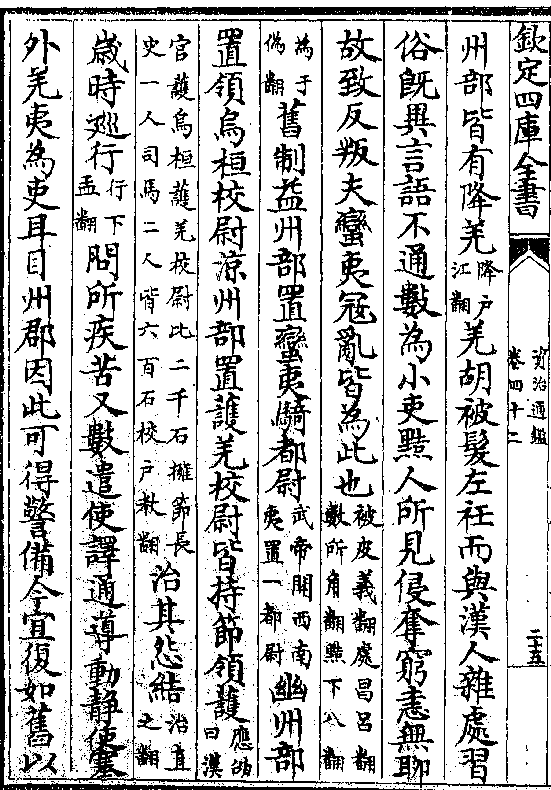 欽定四庫全書
資治通鑑
卷四十二
二十五
州部皆有降羌降戸江翻羌胡被髮左衽而與漢人雜處習
俗旣異言語不通數為小吏黠人所見侵奪窮恚無聊
故致反叛夫蠻夷冦亂皆為此也被皮義翻處昌呂翻數所角翻黠下八翻
為于偽翻舊制益州部置蠻夷騎都尉武帝開西南夷置一都尉幽州部
置領烏桓校尉涼州部置護羌校尉皆持節領護應劭曰漢
官護烏桓護羌校尉比二千石擁節長史一人司馬二人皆六百石校戸教翻治其怨結治直之翻
歲時廵行行下孟翻問所疾苦又數遣使譯通導動静使塞
外羌夷為吏耳目州郡因此可得警備今宜復如舊以